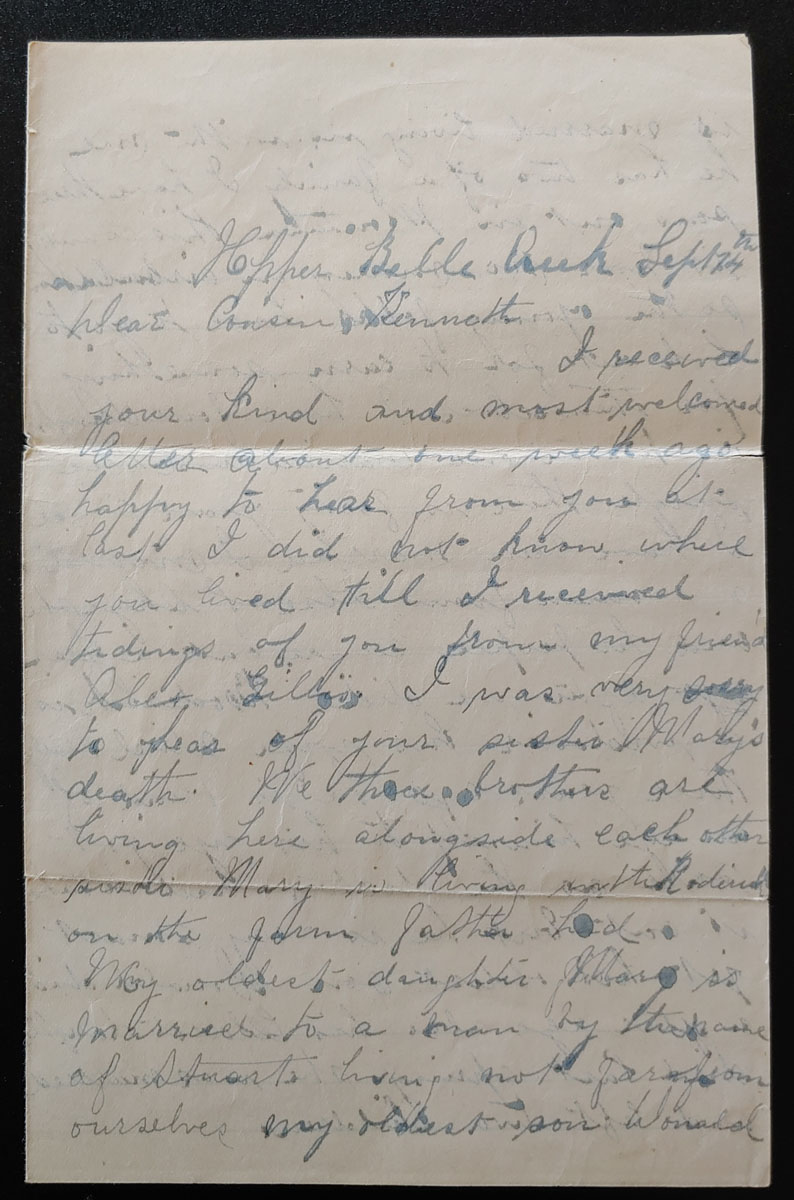 Upper Belle Creek Sept 24th
Dear Cousin Kenneth
I received
your kind and most welcomed
letter about one week ago
happy to hear from you at
last I did not know where
you lived till I received
tidings of you from my friend
Alex Gillis. I was very sorry
to hear of your sister Mary's
death. We three brothers are
living here alongside each other
sister Mary is living with Roderick
on the farm father had.
My oldest daughter Mary is
married to a man by the name
of Stuart living not far from
ourselves my oldest son Donald